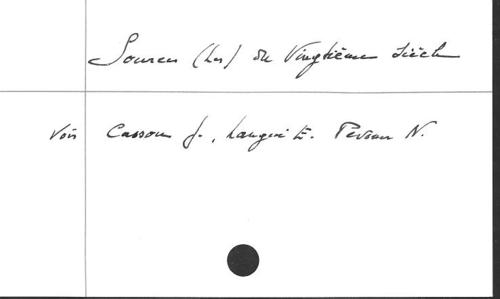 Sources (Les) du Vingtième Siècle
Voir Cassou J., Langui E. Pevsner N.